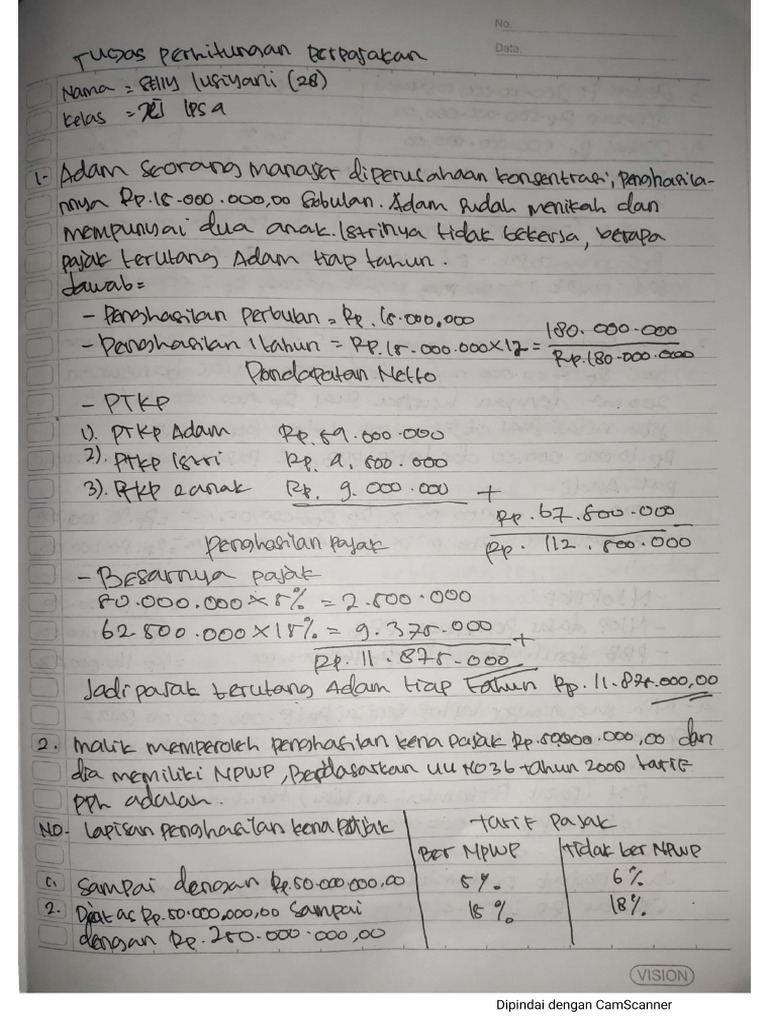 No.
Date.
Tugas Perhitungan Perpajakan
Nama = Selly lusiyani (28)
Kelas = XI IPS 4
1. Adam seorang manajer diperusahaan konsentrasi, penghasila-
nnya Rp.15.000.000,00 Sebulan. Adam sudah menikah dan
mempunyai dua anak. Istrinya tidak bekerja, berapa
pajak terutang Adam tiap tahun.
Jawab =
- Penghasilan perbulan = Rp. 15.000.000
- Penghasilan 1 tahun = Rp.15.000.000 x 12 = 180.000.000
Pendapatan Netto Rp.180.000.000
- PTKP
1). PTKP Adam Rp. 54.000.000
2). PTKP Istri Rp. 4.500.000
3). PTKP 2 anak Rp. 9.000.000 +
Rp. 67.500.000
Penghasilan pajak Rp. 112.500.000
- Besarnya pajak
50.000.000 x 5% = 2.500.000
62.500.000 x 15% = 9.375.000 +
Rp. 11.875.000
Jadi pajak terutang Adam tiap tahun Rp. 11.875.000,00
2. Malik memperoleh penghasilan kena pajak Rp.50.000.000,00 dan
dia memiliki NPWP, Berdasarkan UU NO36 tahun 2008 tarif
PPh adalah.
NO. Lapisan penghasilan kena pajak Tarif Pajak
Ber NPWP Tidak ber NPWP
1. Sampai dengan Rp.50.000.000,00 5% 6%
2. Diatas Rp.50.000.000,00 Sampai 15% 18%
dengan Rp. 250.000.000,00
VISION
Dipindai dengan CamScanner